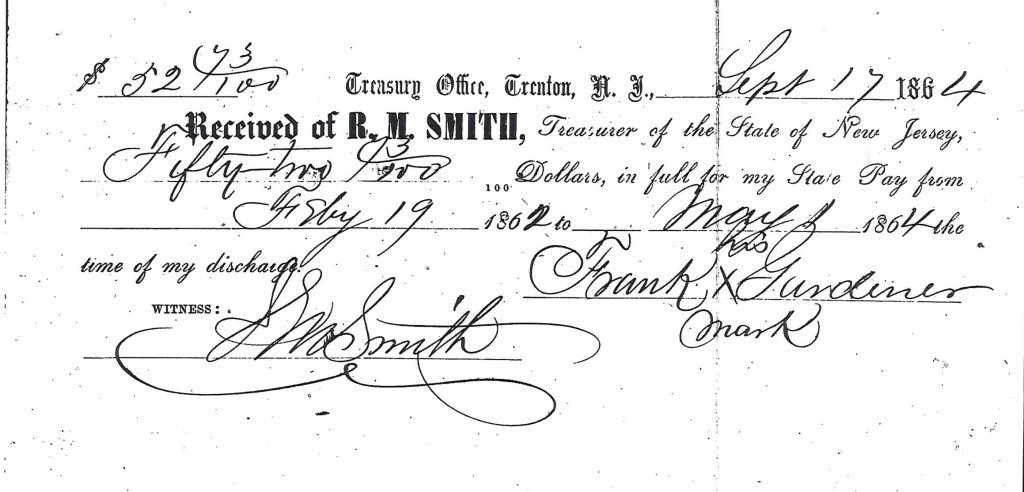 $ 52 73/100 Treasury Office, Trenton, N. J., Sept 17 1864
Received of R. M. SMITH, Treasurer of the State of New Jersey,
Fifty two 73/100 100 Dollars, in full for my State Pay from
Feby 19 1862 to May 1864 the
time of my discharge.
his
Frank X Gardener
mark
WITNESS:
Smith